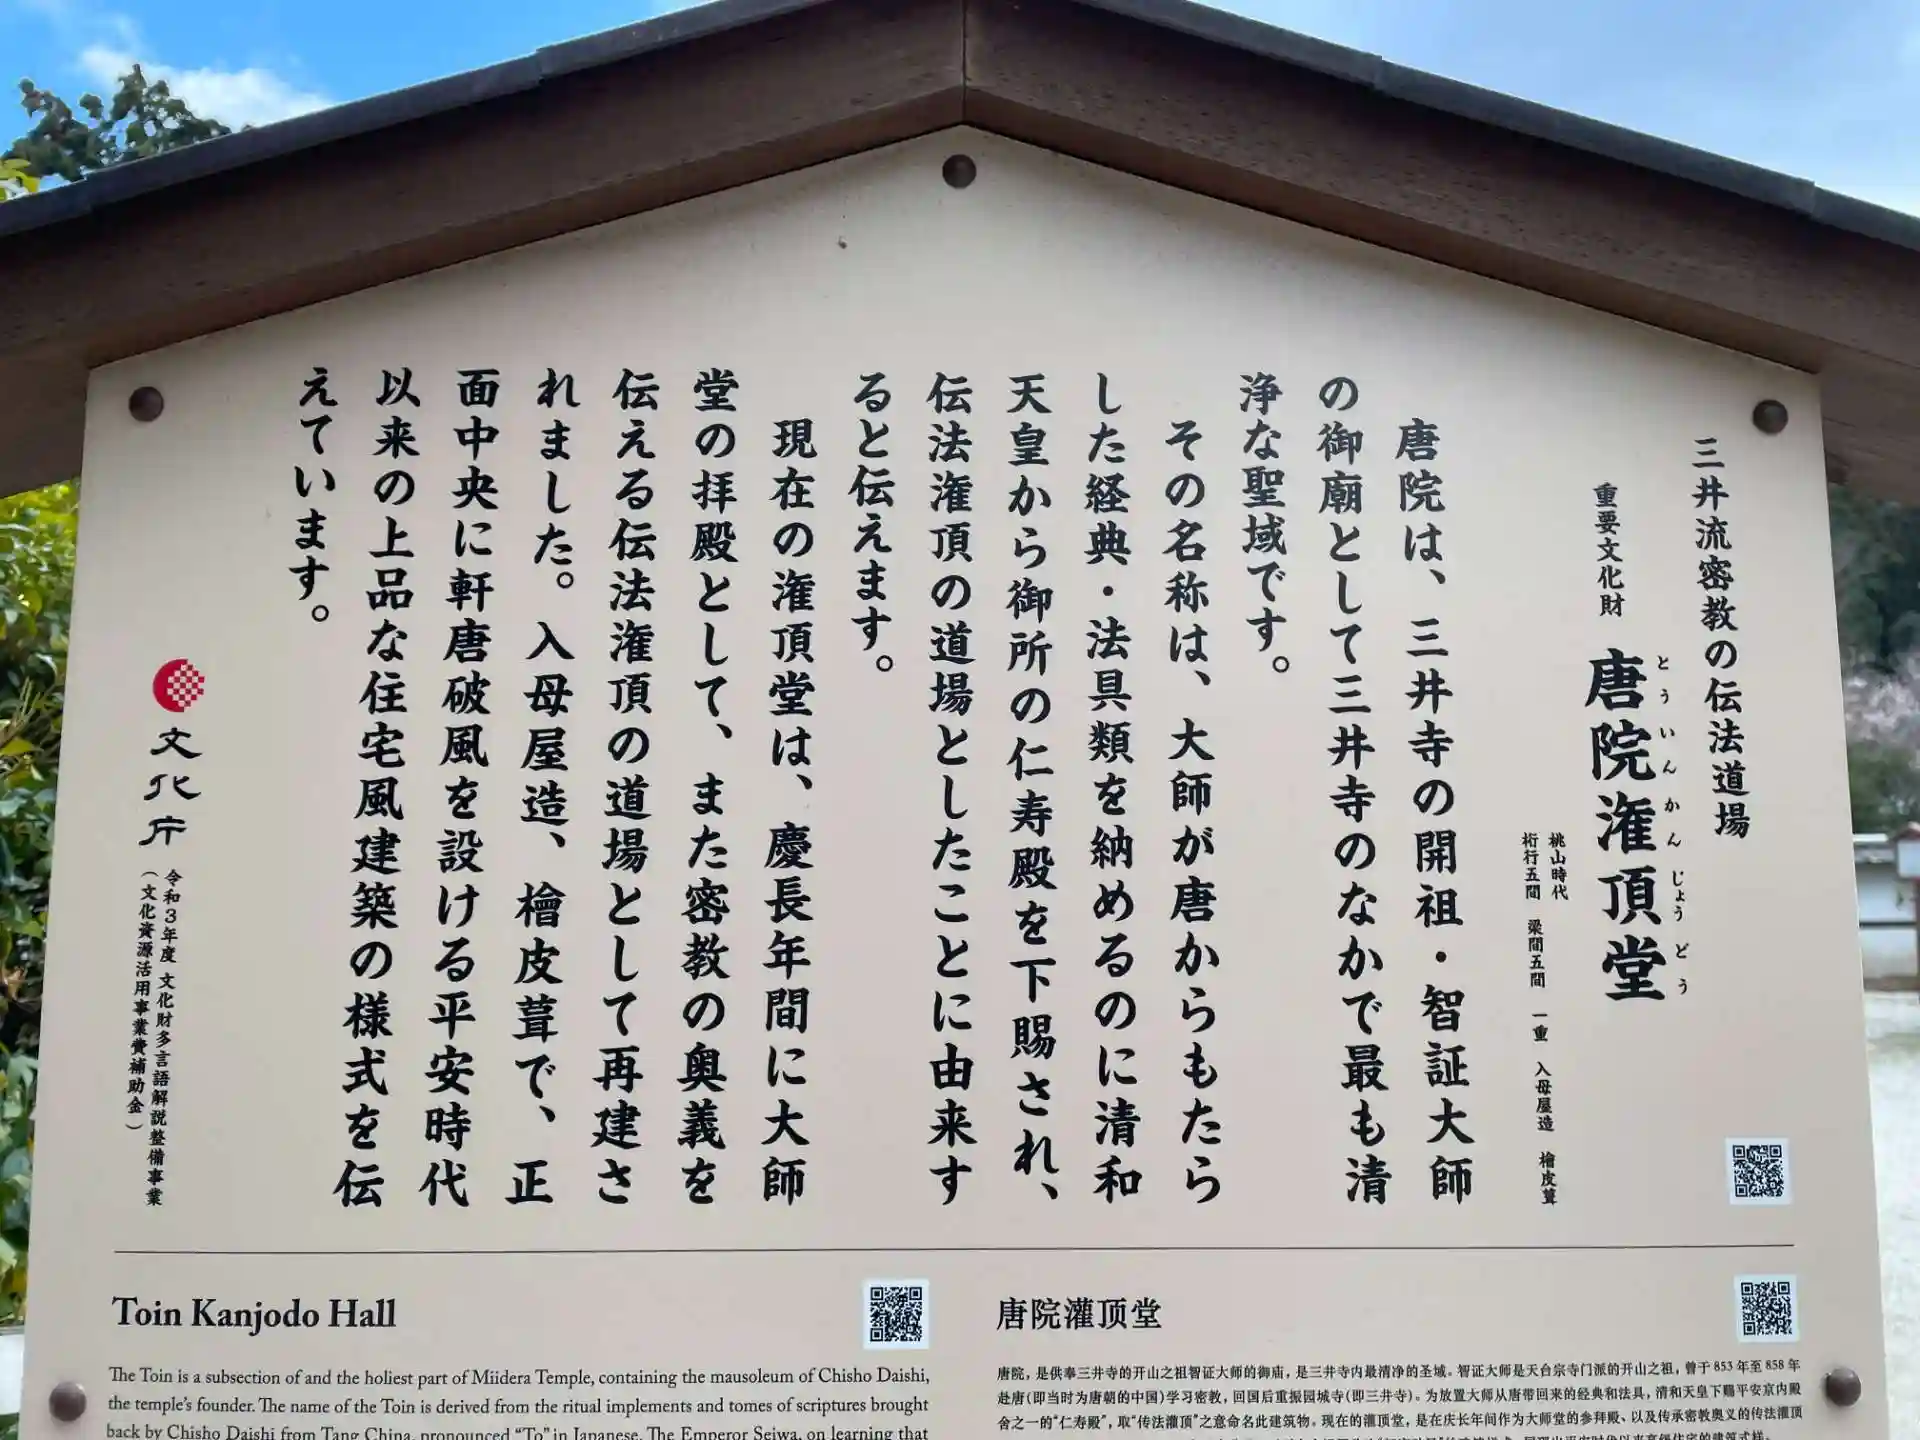 三井流密教の伝法道場
重要文化財 唐院潅頂堂
とういんかんじょうどう
桃山時代
桁行五間 梁間五間 一重 入母屋造 檜皮葺
唐院は、三井寺の開祖・智証大師
の御廟として三井寺のなかで最も清
浄な聖域です。
その名称は、大師が唐からもたら
した経典・法具類を納めるのに清和
天皇から御所の仁寿殿を下賜され、
伝法潅頂の道場としたことに由来す
ると伝えます。
現在の潅頂堂は、慶長年間に大師
堂の拝殿として、また密教の奥義を
伝える伝法潅頂の道場として再建さ
れました。入母屋造、檜皮葺で、正
面中央に軒唐破風を設ける平安時代
以来の上品な住宅風建築の様式を伝
えています。
文化庁
令和3年度 文化財多言語解説整備事業
(文化資源活用事業費補助金)
Toin Kanjodo Hall
The Toin is a subsection of and the holiest part of Miidera Temple, containing the mausoleum of Chisho Daishi,
the temple's founder. The name of the Toin is derived from the ritual implements and tomes of scriptures brought
back by Chisho Daishi from Tang China, pronounced “To” in Japanese. The Emperor Seiwa, on learning that
唐院灌顶堂
唐院，是供奉三井寺的开山之祖智证大师的御庙，是三井寺内最清净的圣域。智证大师是天台宗寺门派的开山之祖，曾于 853 年至 858 年
赴唐(即当时为唐朝的中国)学习密教，回国后重振园城寺(即三井寺)。为放置大师从唐带回来的经典和法具，清和天皇下赐平安京内殿
舍之一的“仁寿殿”，取“传法灌顶”之意命名此建筑物。现在的灌顶堂，是在庆长年间作为大师堂的参拜殿、以及传承密教奥义的传法灌顶